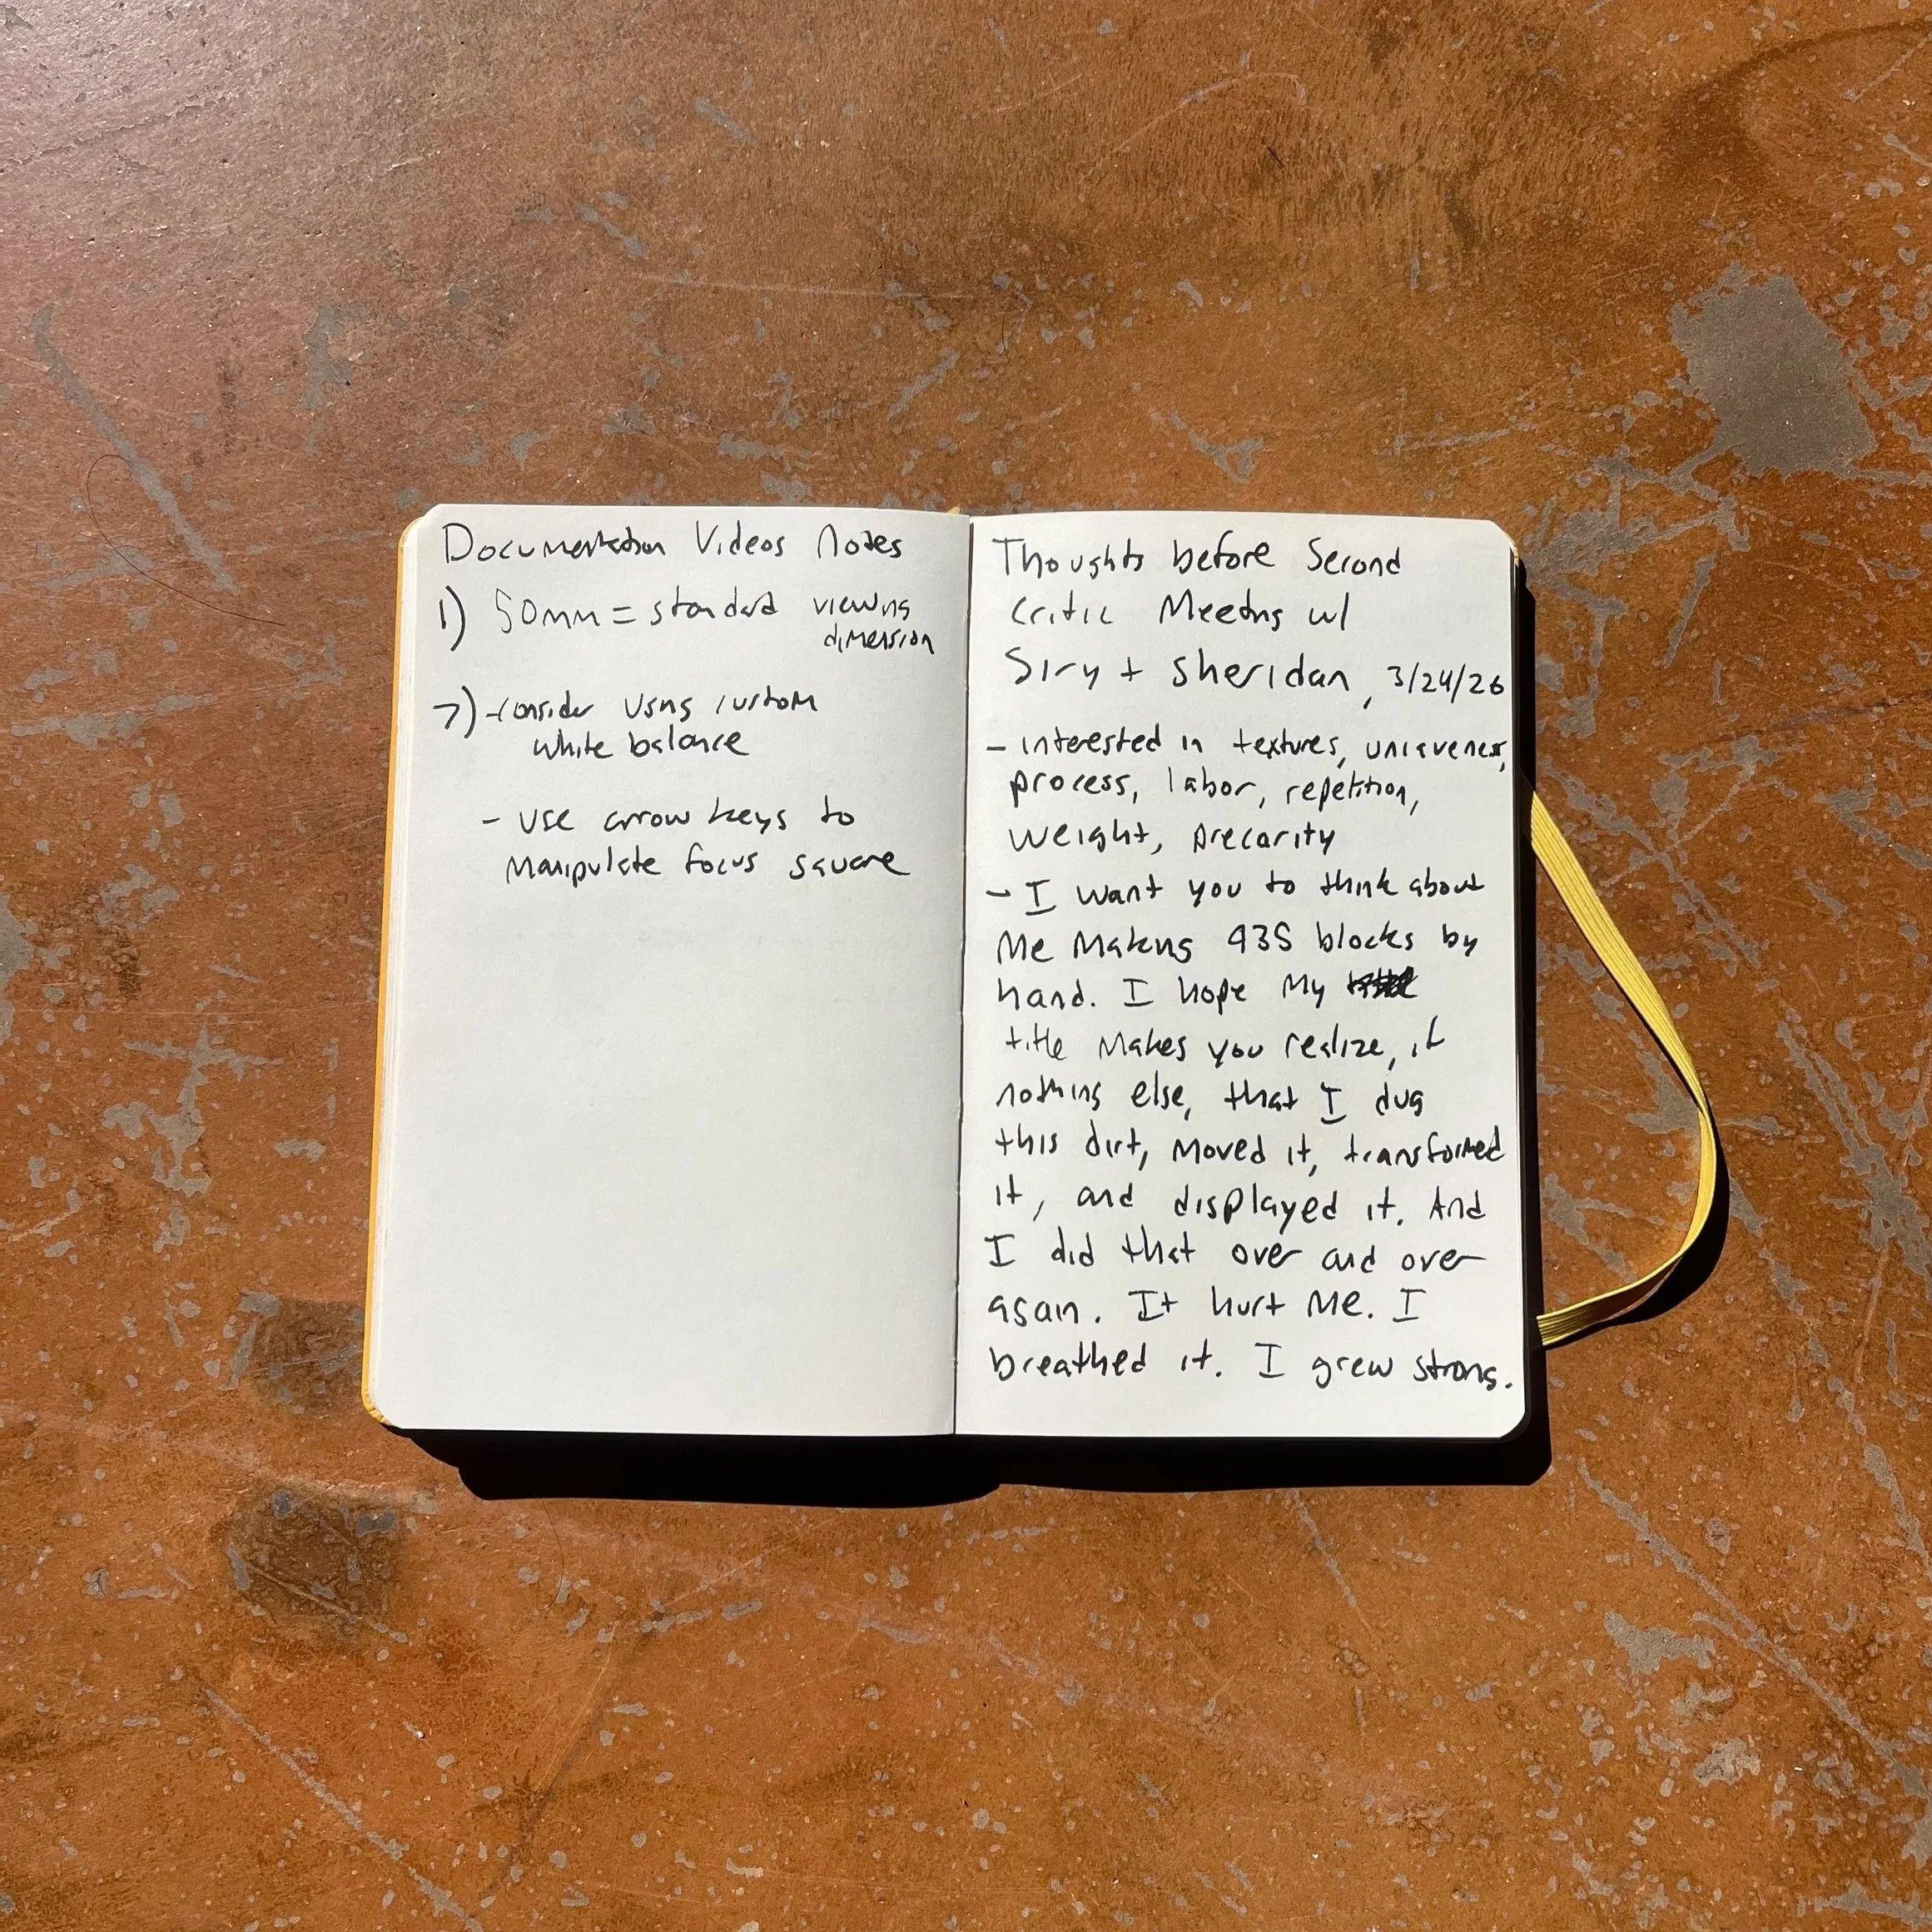 Documentation Videos Notes
1) 50mm = standard viewing
dimension
2) - consider using custom
white balance
- use arrow keys to
manipulate focus square
Thoughts before Second
Critic Meeting w/
Siry + Sheridan, 3/24/26
- interested in textures, uniqueness,
process, labor, repetition,
weight, precarity
- I want you to think about
me making 935 blocks by
hand. I hope my
title makes you realize, if
nothing else, that I dug
this dirt, moved it, transformed
it, and displayed it. And
I did that over and over
again. It hurt me. I
breathed it. I grew strong.